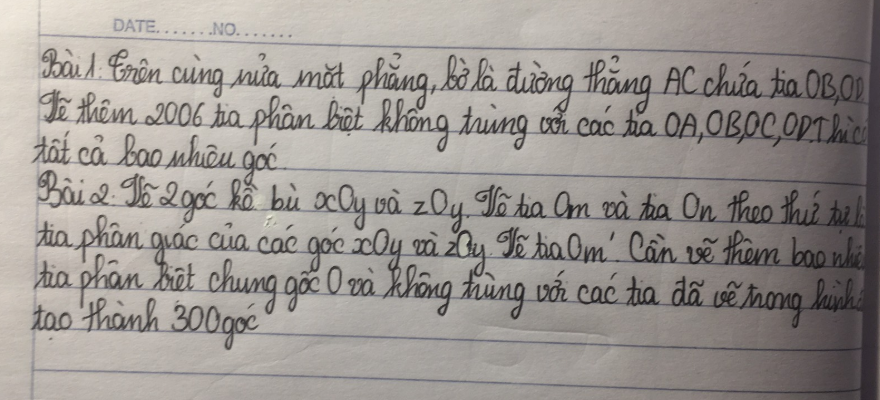 DATE.......NO.......
Bài 1: Trên cùng nửa mặt phẳng, bờ là đường thẳng AC chứa tia OB, OD
Vẽ thêm 2006 tia phân biệt không trùng với các tia OA, OB, OC, OD. Thì có
tất cả bao nhiêu góc
Bài 2. Vẽ 2 góc kề bù xOy và zOy. Vẽ tia Om và tia On theo thứ tự
tia phân giác của các góc xOy và zOy. Vẽ tia Om'. Cần vẽ thêm bao
tia phân biệt chung gốc O và không trùng với các tia đã vẽ trong hình
tạo thành 300 góc